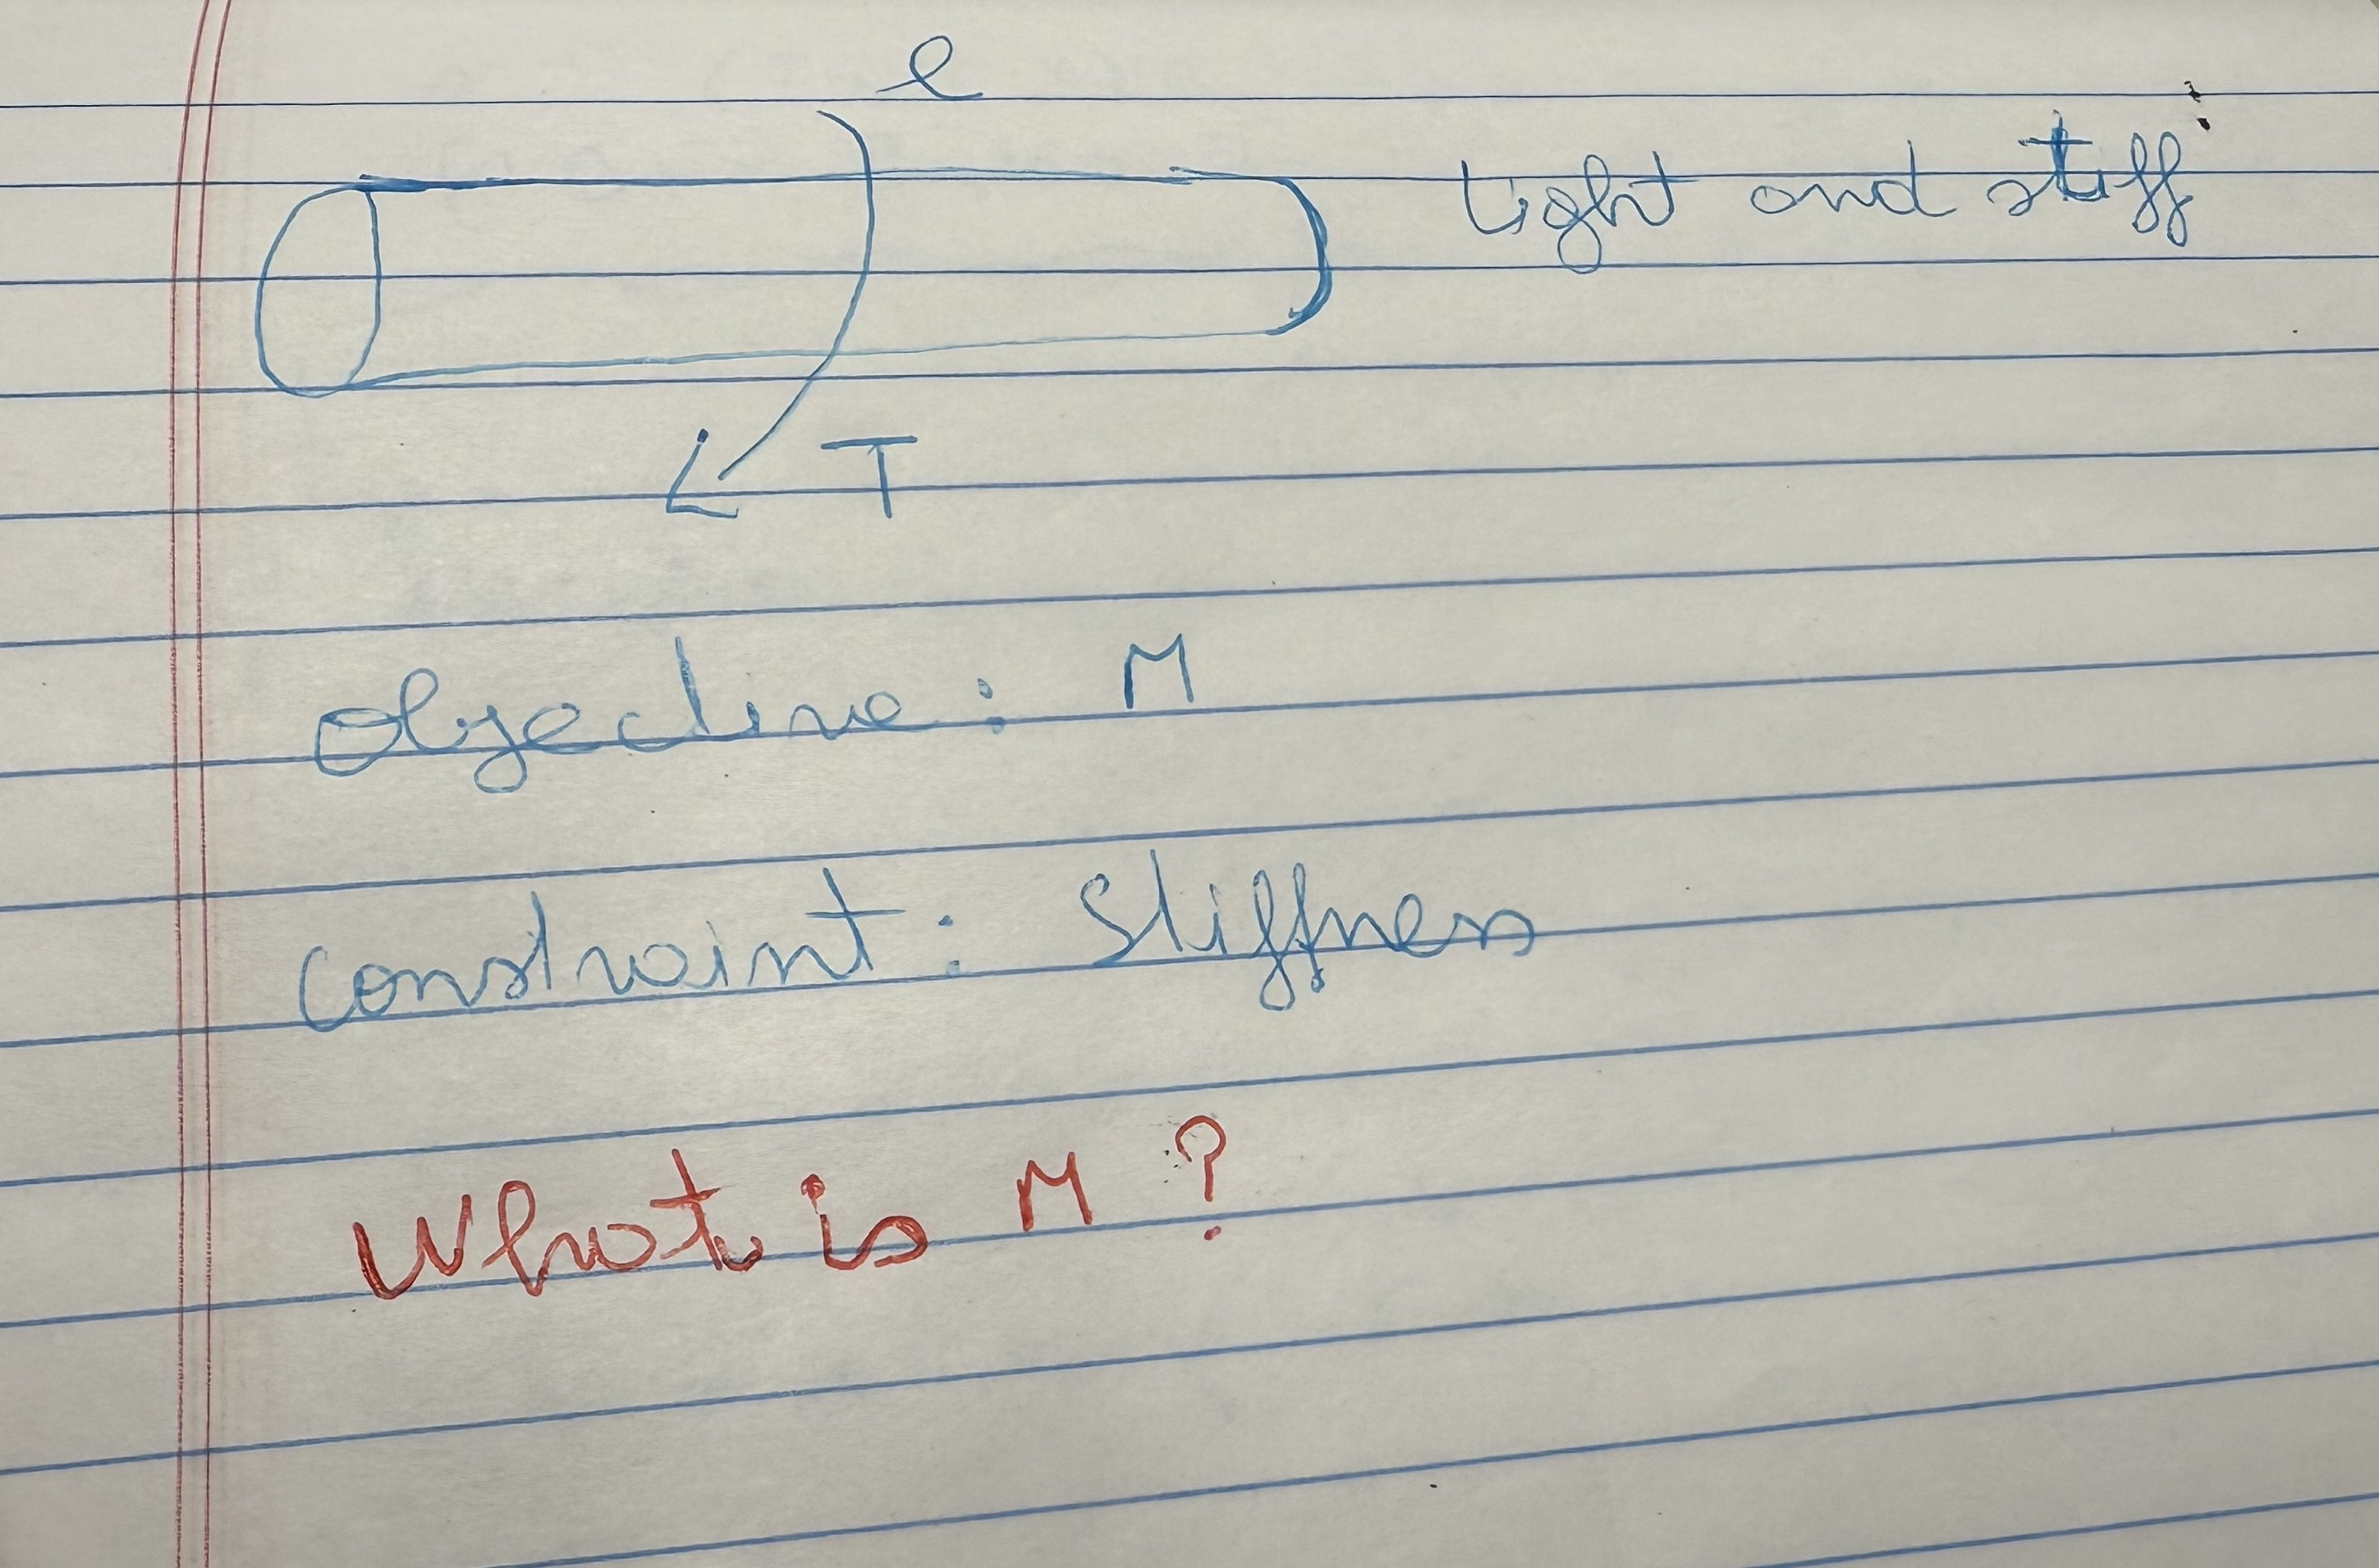 l
Light and stiff
T
Objective : M
Constraint : Stiffness
What is M ?